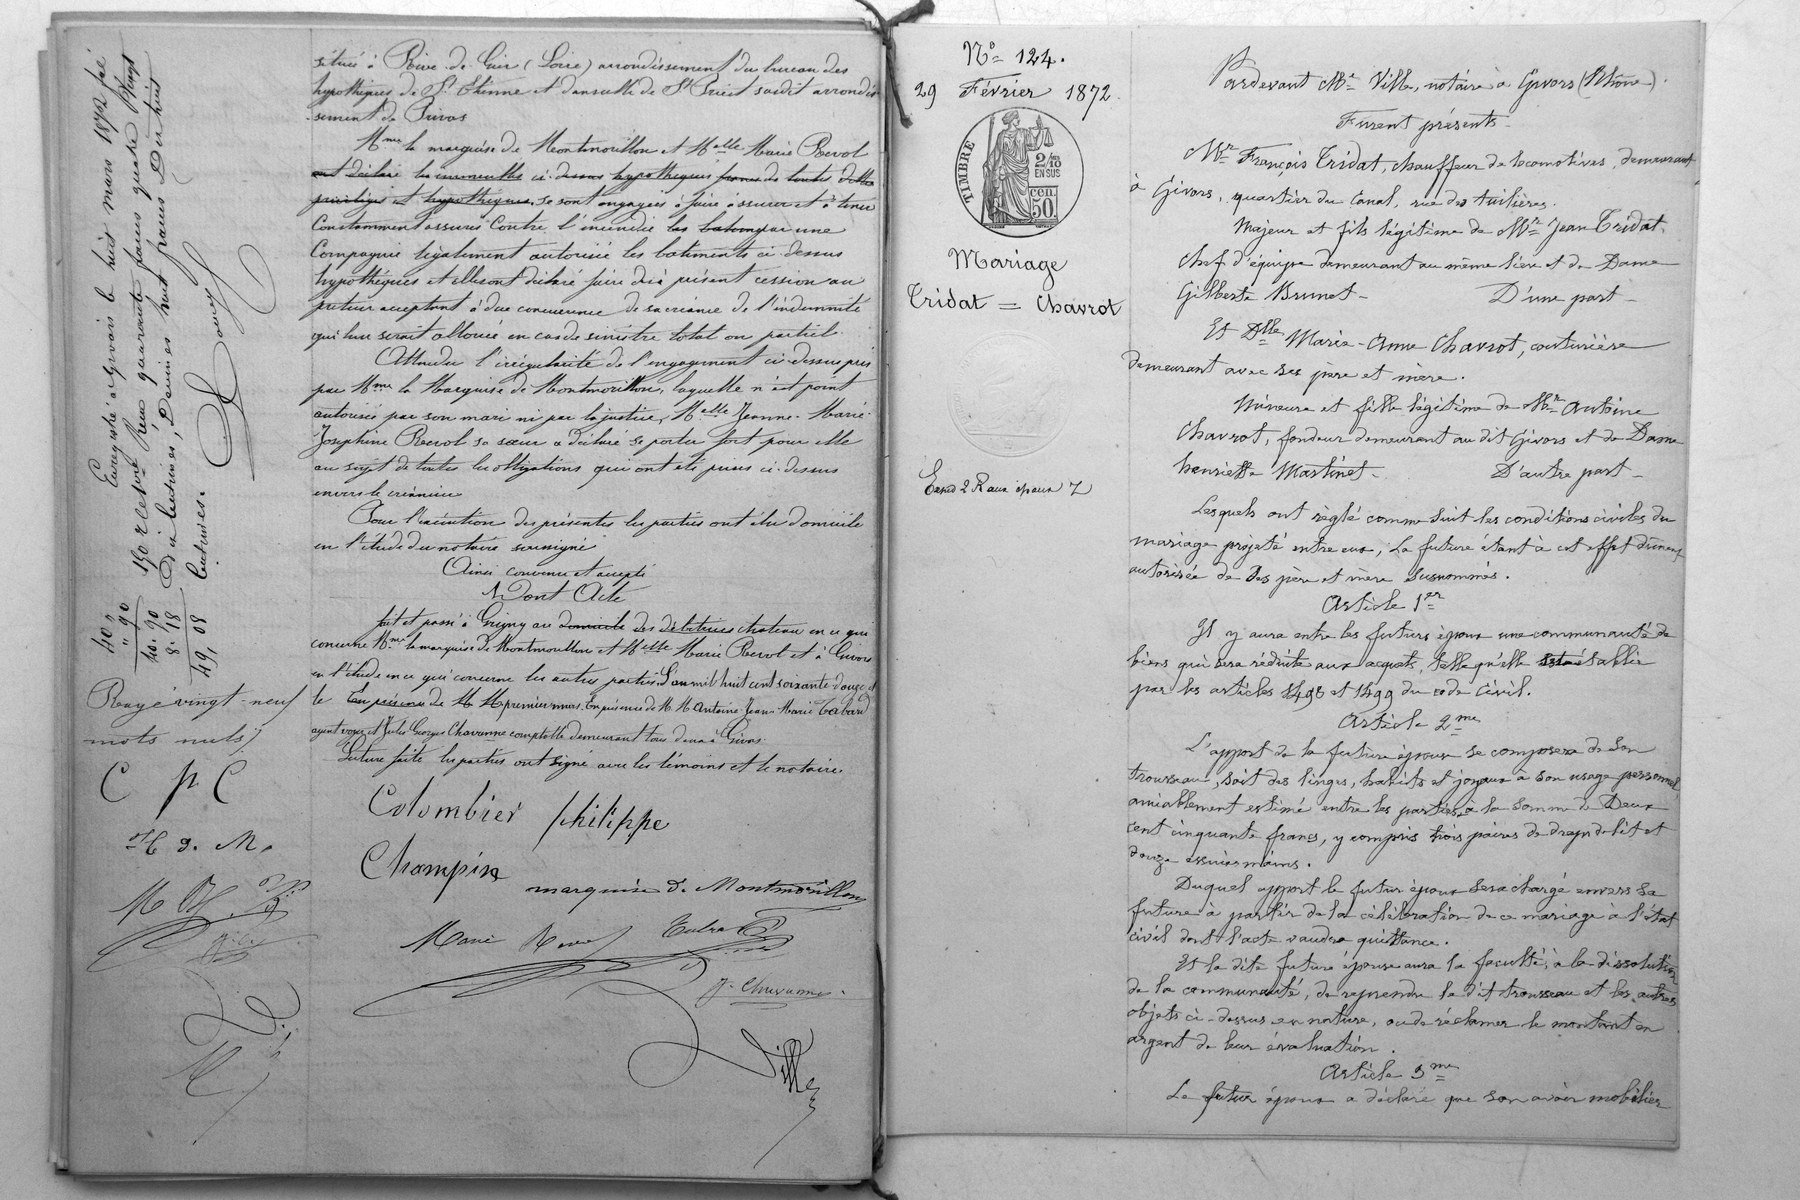 située à Rive de Gier (Loire) arrondissement du bureau des
hypothèques de St Etienne et dans celle de St Priest sudit arrondis
sement de Privas
Mme la marquise de Montmorillon et Melle Marie Revol
ont déclaré les immeubles ci-dessus hypothéqués francs de toutes dettes
privilèges et hypothèques, se sont engagées à faire assurer et à tenir
Constamment assurés Contre l'incendie les par une
Compagnie légalement autorisée les bâtiments ci-dessus
hypothéqués et elles ont déclaré faire dès à présent cession au
prêteur acceptant à due concurrence de sa créance de l'indemnité
qui leur serait allouée en cas de sinistre total ou partiel.
Attendu l'irrégularité de l'engagement ci-dessus pris
par Mme la Marquise de Montmorillon, laquelle n'est point
autorisée par son mari ni par la justice, Melle Jeanne-Marie-
Joséphine Revol sa sœur a déclaré se porter fort pour elle
au sujet de toutes les obligations qui ont été prises ci-dessus
envers le créancier
Pour l'exécution des présentes les parties ont élu domicile
en l'étude du notaire soussigné
Ainsi convenu et accepté
Dont Acte
fait et passé à Grigny au domicile des débitrices chateau en ce qui
concerne Mme la marquise de Montmorillon et Melle Marie Revol et à Givors
en l'étude en ce qui concerne les autres parties. L'an mil huit cent soixante douze et
le En présence de M M premier mars. En présence de M M Antoine-Jean-Marie Tabard
agent voyer et Jules Georges Chavanne comptable demeurant tous deux à Givors.
Lecture faite les parties ont signé avec les témoins et le notaire.
Colombier philippe
Champin
marquise de Montmorillon
Marie Revol
J. Chavanne
Ville
Enregistré à Givors le huit mars 1872 f°
150 Reçu quarante francs quatre vingt
dix centimes, Décimes huit francs Dix huit
centimes.
40,"
" 90
40.90
8.18
49,08
Rayé vingt-neuf
mots nuls
C p C
H d. M.
No 124.
29 Février 1872.
TIMBRE
2/10
EN SUS
50 cen.
Mariage
Tridat = Chavrot
Pardevant Me Ville, notaire à Givors (Rhône)
Furent présents
Mr François Tridat, chauffeur de locomotives, demeurant
à Givors, quartier du Canal, rue des tuilières.
Majeur et fils légitime de Mr Jean Tridat,
Chef d'équipe demeurant au même lieu et de Dame
Gilberte Brunet - D'une part -
Et Dlle Marie-Anne Chavrot, couturière
demeurant avec ses père et mère.
Mineure et fille légitime de Mr Antoine
Chavrot, fondeur demeurant au dit Givors et de Dame
henriette Martinet - D'autre part -
Lesquels ont réglé comme suit les conditions civiles du
mariage projeté entre eux, la future étant à cet effet dûment
autorisée de ses père et mère susnommés.
Article 1er
Il y aura entre les futurs époux une communauté de
biens qui sera réduite aux acquets, telle qu'elle est établie
par les articles 1498 et 1499 du code Civil.
Article 2me
L'apport de la future épouse se composera de son
trousseau, soit des linges, habits et joyaux à son usage personnel
amiablement estimé entre les parties, à la somme de Deux
cent cinquante francs, y compris trois paires de draps de lit et
douze essuie mains.
Duquel apport le futur époux sera chargé envers sa
future à partir de la célébration de ce mariage à l'état
civil dont l'acte vaudra quittance.
Et la dite future épouse aura la faculté, à la dissolution
de la communauté, de reprendre le dit trousseau et les autres
objets ci-dessus en nature, ou de réclamer le montant en
argent de leur évaluation.
Article 3me
Le futur époux a déclaré que son avoir mobilier